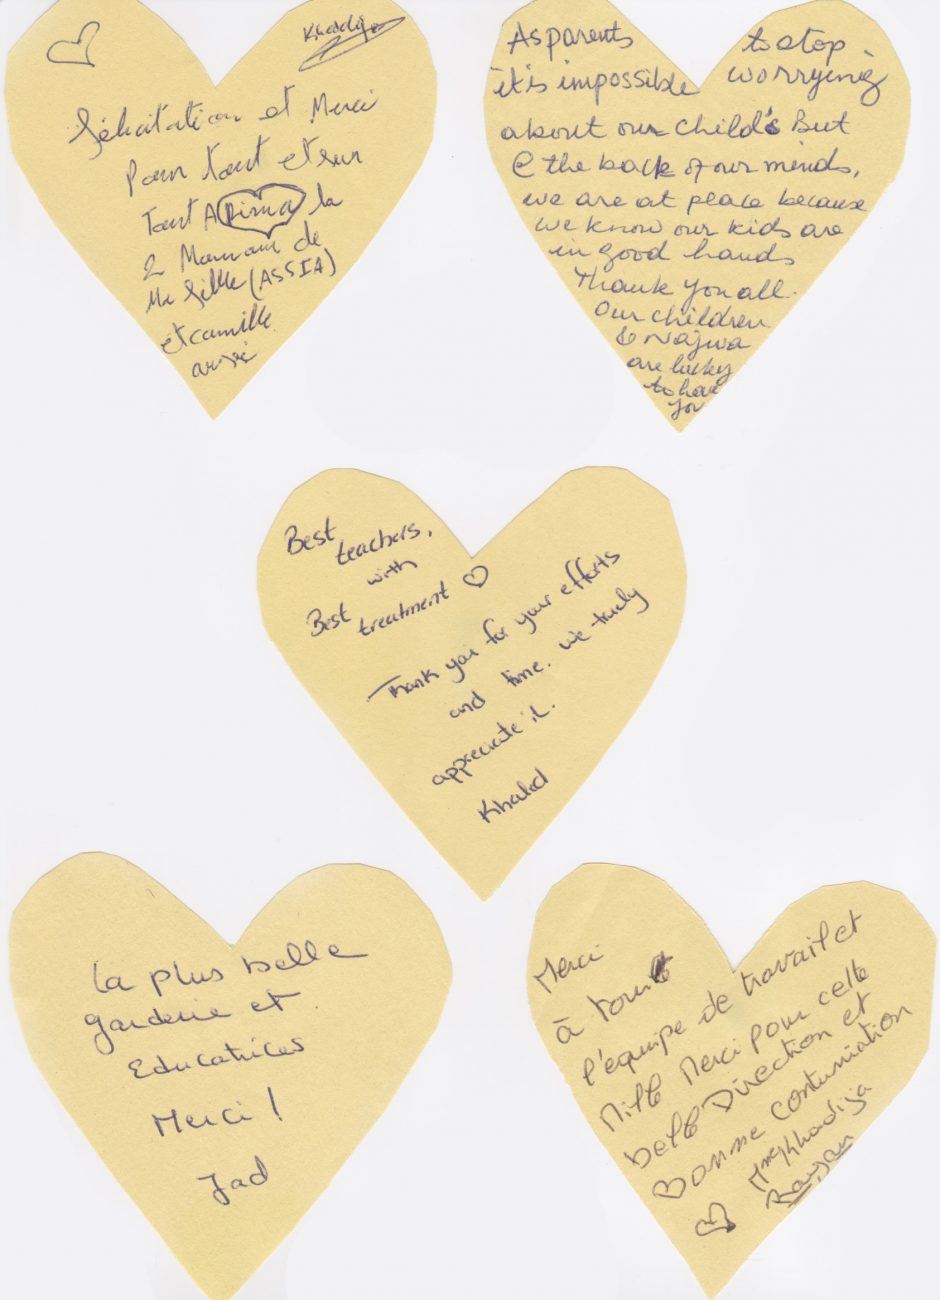 Khadija
félicitation et Merci
Pour tout et sur
Tout A Rima la
2 Maman de
Ma fille (ASSIA)
et camille
aussi
As parents to stop
it is impossible worrying
about our child's But
@ the back of our minds,
we are at peace because
we know our kids are
in good hands
Thank you all.
Our children
& Najwa
are lucky
to have
you
Best
teachers,
with
Best
treatment
Thank you for your efforts
and time. we truly
appreciate it.
Khaled
La plus belle
garderie et
Educatrices
Merci!
Jad
Merci
à toute
l'équipe de travail et
Mille Merci pour cette
belle Direction et
Bonne contunuation
Khadija
Rayan